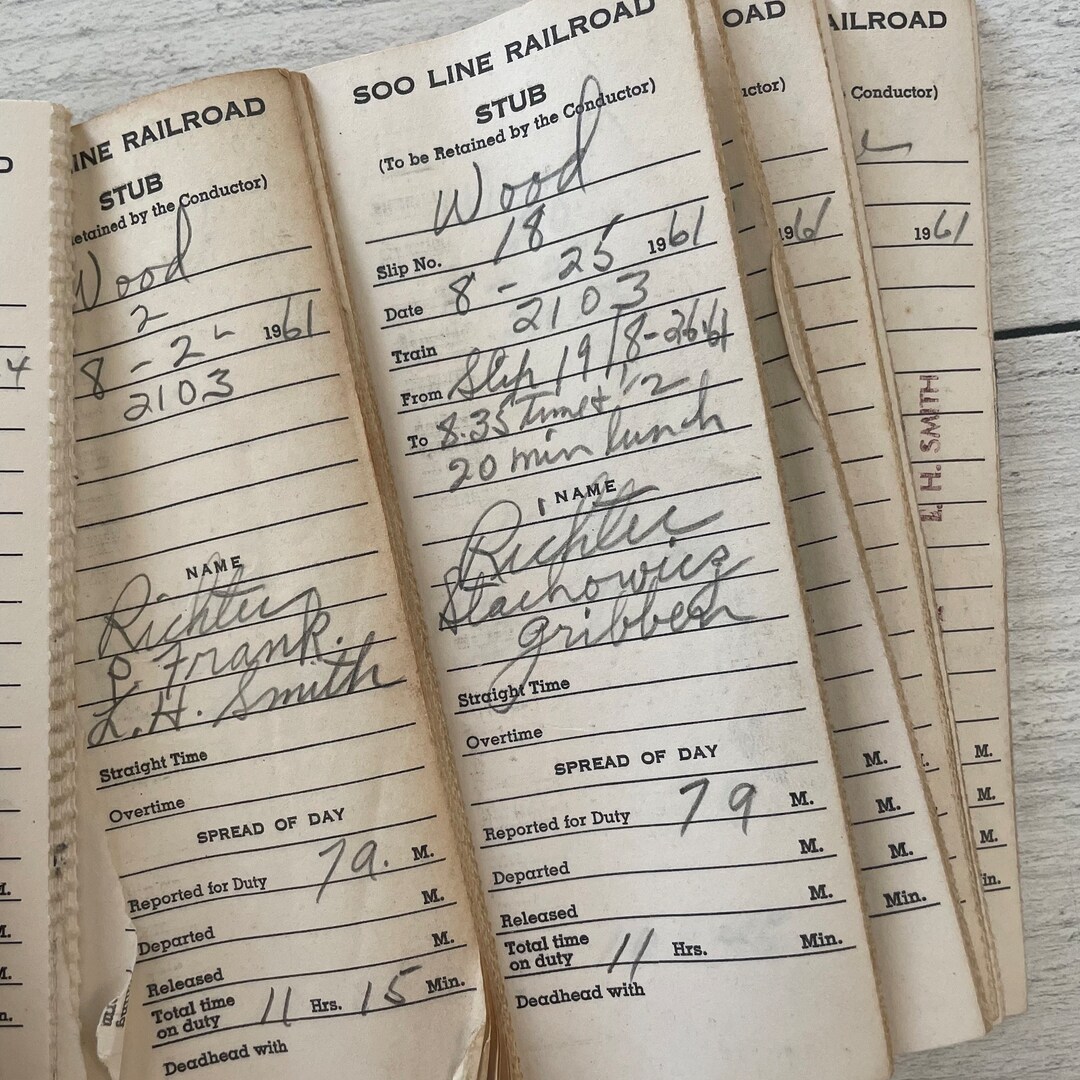 D
4
M.
M.
M.
n.
INE RAILROAD
STUB
etained by the Conductor)
Wood
2
8 - 2 1961
2103
NAME
Richter
P. Frank.
L.H. Smith
Straight Time
Overtime
SPREAD OF DAY
Reported for Duty 7a. M.
Departed M.
Released M.
Total time on duty 11 Hrs. 15 Min.
Deadhead with
SOO LINE RAILROAD
STUB
(To be Retained by the Conductor)
Wood
Slip No. 18
Date 8 - 25 1961
Train 2103
From Slip 19 / 8-26-61
To 8.35 Time + 1/2
20 min lunch
NAME
Richter
Stachowicz
Gribben
Straight Time
Overtime
SPREAD OF DAY
Reported for Duty 7a M.
Departed M.
Released M.
Total time on duty 11 Hrs. Min.
Deadhead with
OAD
uctor)
1961
M.
M.
M.
Min.
AILROAD
Conductor)
1961
H. SMITH
M.
M.
M.
in.